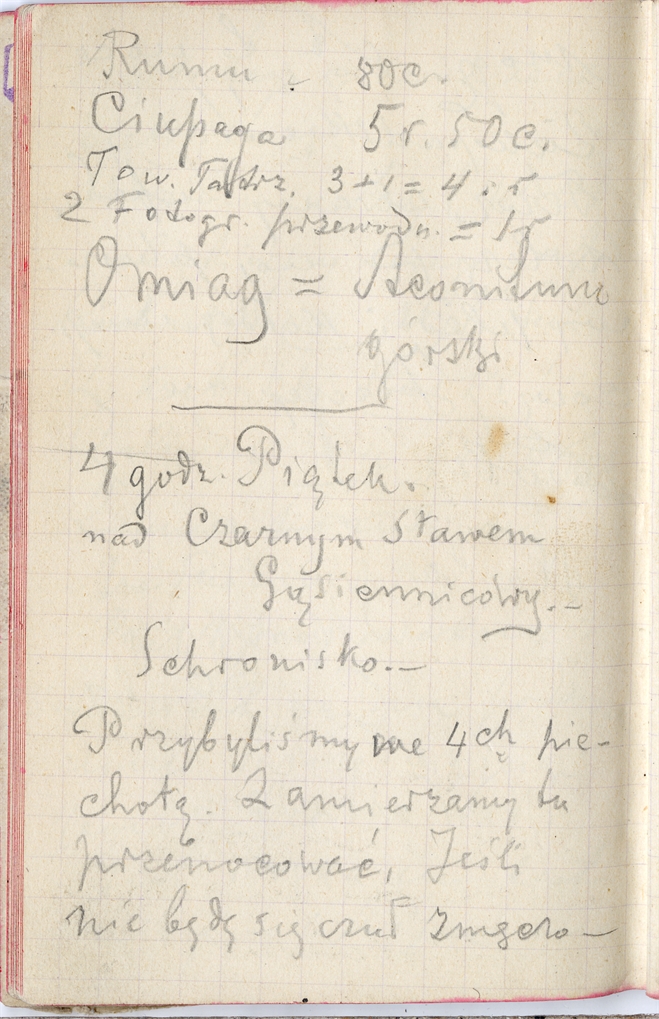 Rumu - 80c.
Ciupaga 5r. 50c.
Tow. Tatrz. 3+1 = 4 r
2 Fotogr. przewodn. = 1r
Omiag = Aconitum
górski
4 godz. Piątek.
nad Czarnym Stawem
Gąsiennicowy.-
Schronisko.-
Przybyliśmy we 4ch pie-
chotą. Zamierzamy tu
przenocować, Jeśli
nie będę się czuł zmęczo-